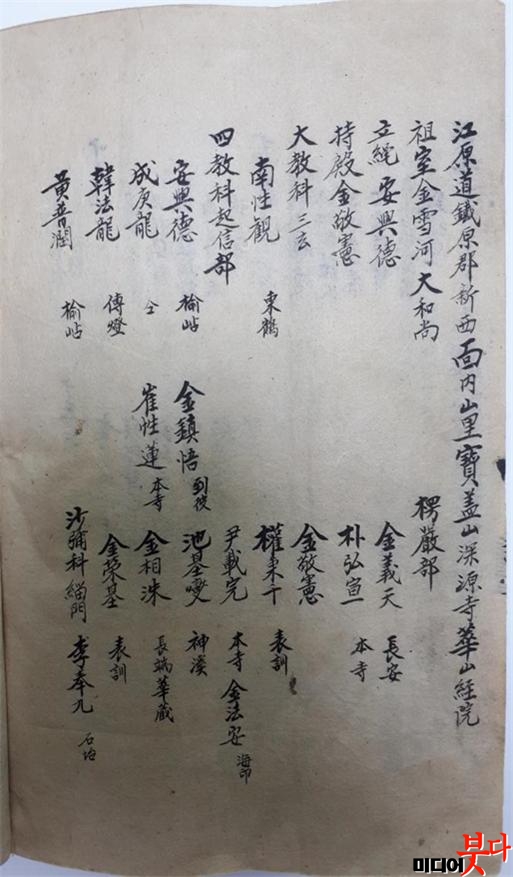 江原道鐵原郡新西面內山里寶盖山深源寺華山経院
祖室金雪河大和尚
立繩 安興德
持殿金敬憲
大教科三玄
南性觀 東鶴
四教科起信部
安興德 楡岾
成庚龍 仝
韓法龍 傳燈
黃普潤 楡岾
金鎮悟 到彼
崔性蓮 本寺
楞嚴部
金義天 長安
朴弘宣 本寺
金敬憲
權秉千 表訓
尹載完 本寺
金法安 海印
池基燮 神溪
金相洙 長端華藏
金榮基 表訓
沙彌科緇門
李奉九 石
미디어붓다